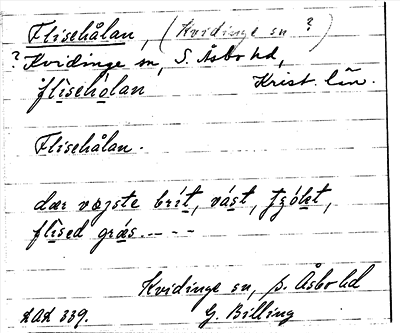 Flisehålan, (Kvidinge sn ?)
? Kvidinge sn, S. Åsbo hd,
flisehòlan Krist. län.
Flisehålan.
dær vøzste brít, våst, tjóķt,
flised grǽs. - - -
Kvidinge sn, S. Åsbo hd
LAL 339. G. Billing